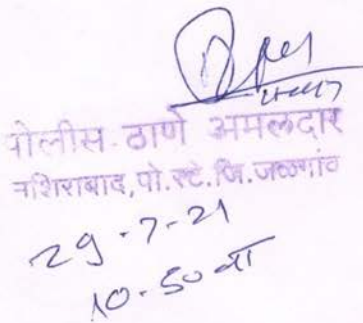 पोलीस ठाणे अमलदार
नशिराबाद, पो.स्टे.जि.जळगांव
29-7-21
10-50 वा